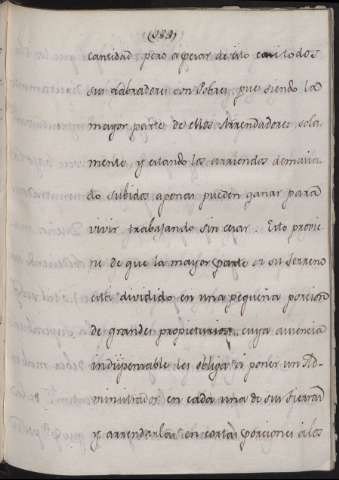 (388)
cantidad; pero apesar de esto casi todos
sus Labradores son Pobres, pues siendo la
mayor parte de ellos Arrendadores sola-
mente, y estando los arriendos demasia-
do subidos apenas pueden ganar para
vivir trabajando sin cesar. Esto provie-
ne de que la mayor parte de su terreno
está dividido en una pequeña porcion
de grandes propietarios, cuya ausencia
indispensable les obliga á poner un Ad-
ministrador en cada una de sus tierras
y arrendarlas en cortas porciones á los